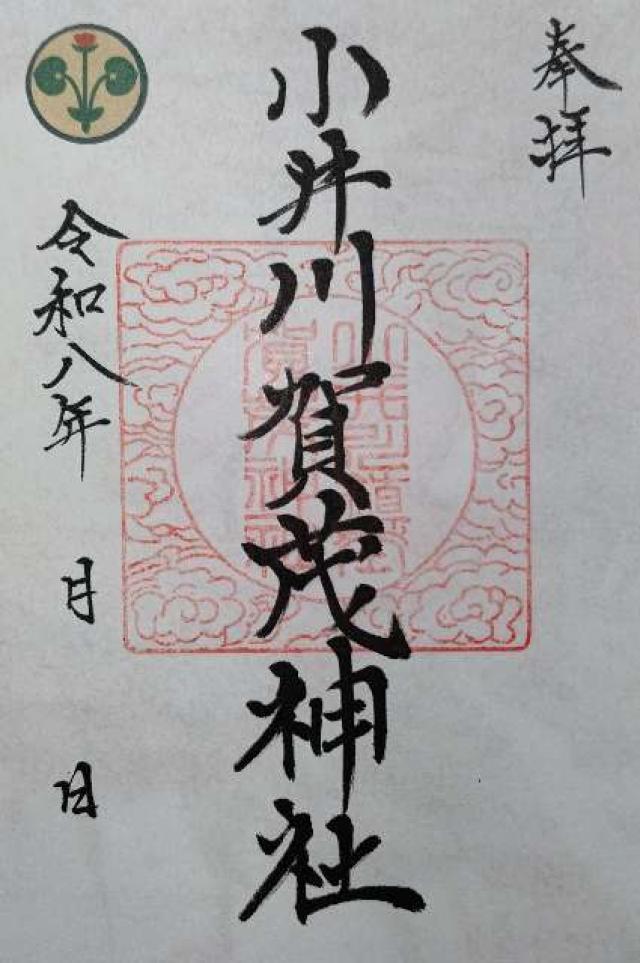 奉拝
小井川賀茂神社
令和八年 月 日